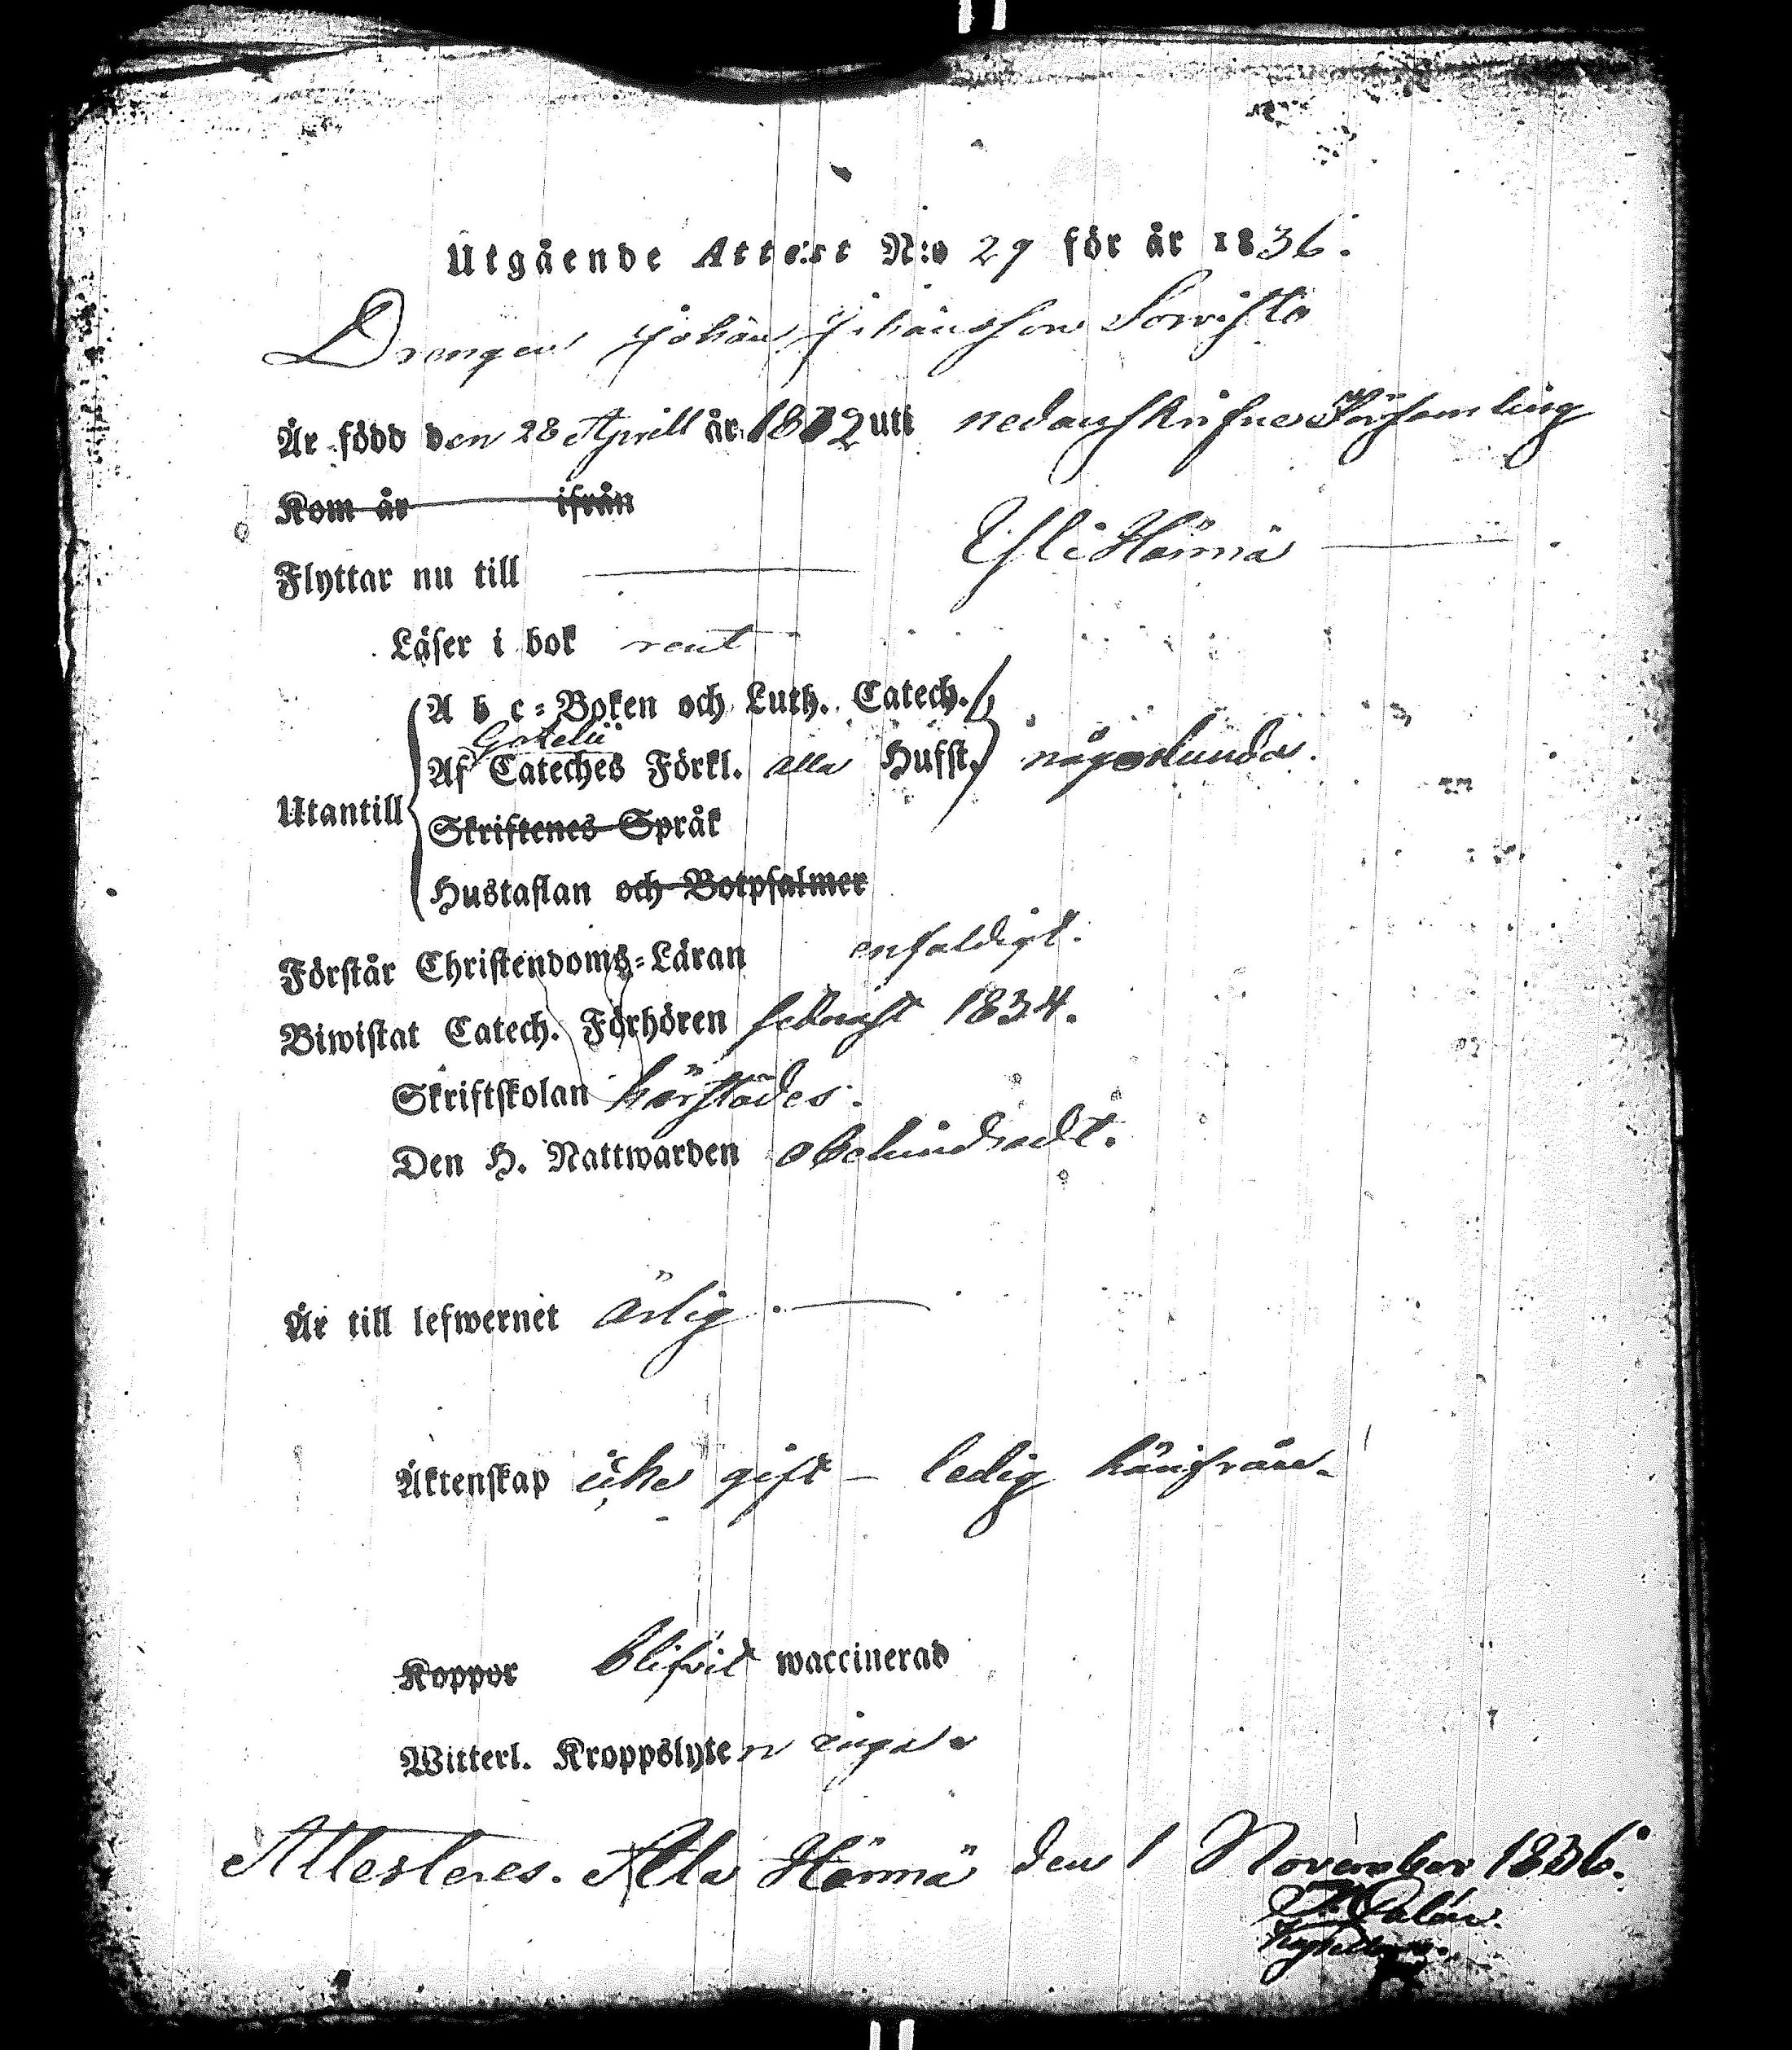 Utgående Attest N:o 29 för år 1836.
Drengen Johan Johansson Sorvisto
Är född den 28 Aprill år 1812 uti nedanskrifne Församling
Kom år ifrån
Flyttar nu till Yli Härmä
Läser i bok rent
A b c-Boken och Luth. Catech.
Af Cateches Förkl. alla Hufst. någorlunda.
Utantill
Skriftenes Språk
Hustaflan och Botpsalmer
Förstår Christendoms-Läran enfaldigt.
Biwistat Catech. Förhören sednast 1834.
Skriftskolan härstädes.
Den H. Nattwarden obehindradt.
Är till lefwernet ärlig.
Äktenskap icke gift – ledig härifrån.
Koppor blifvit waccinerad
Witterl. Kroppslyten inga.
Attesteras. Ala Härmä den 1 November 1836.